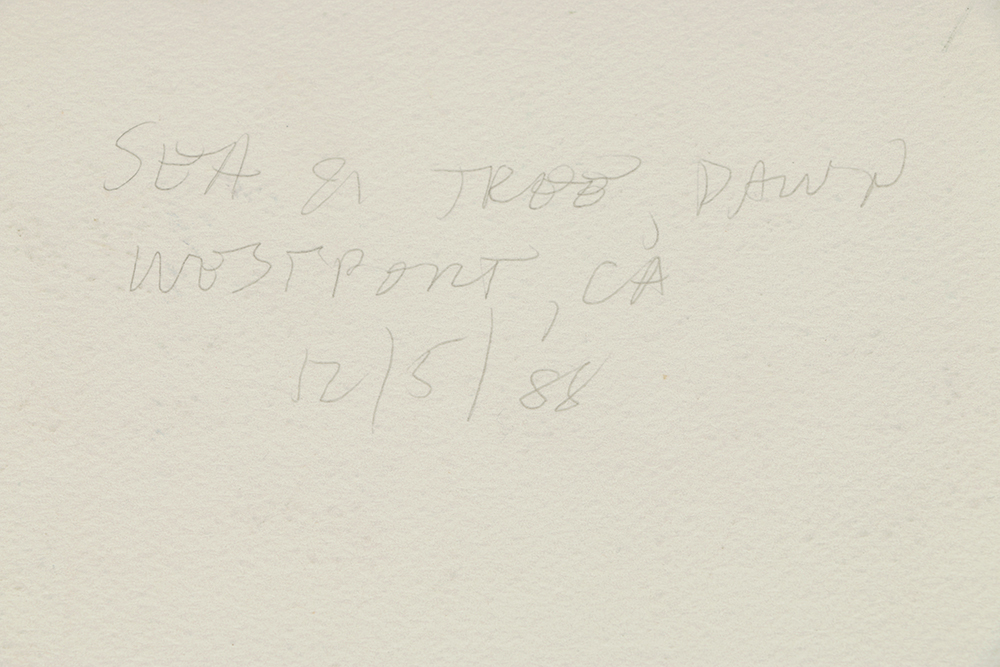 SEA & TREE, DAWN
WESTPORT, CA
12/5/88